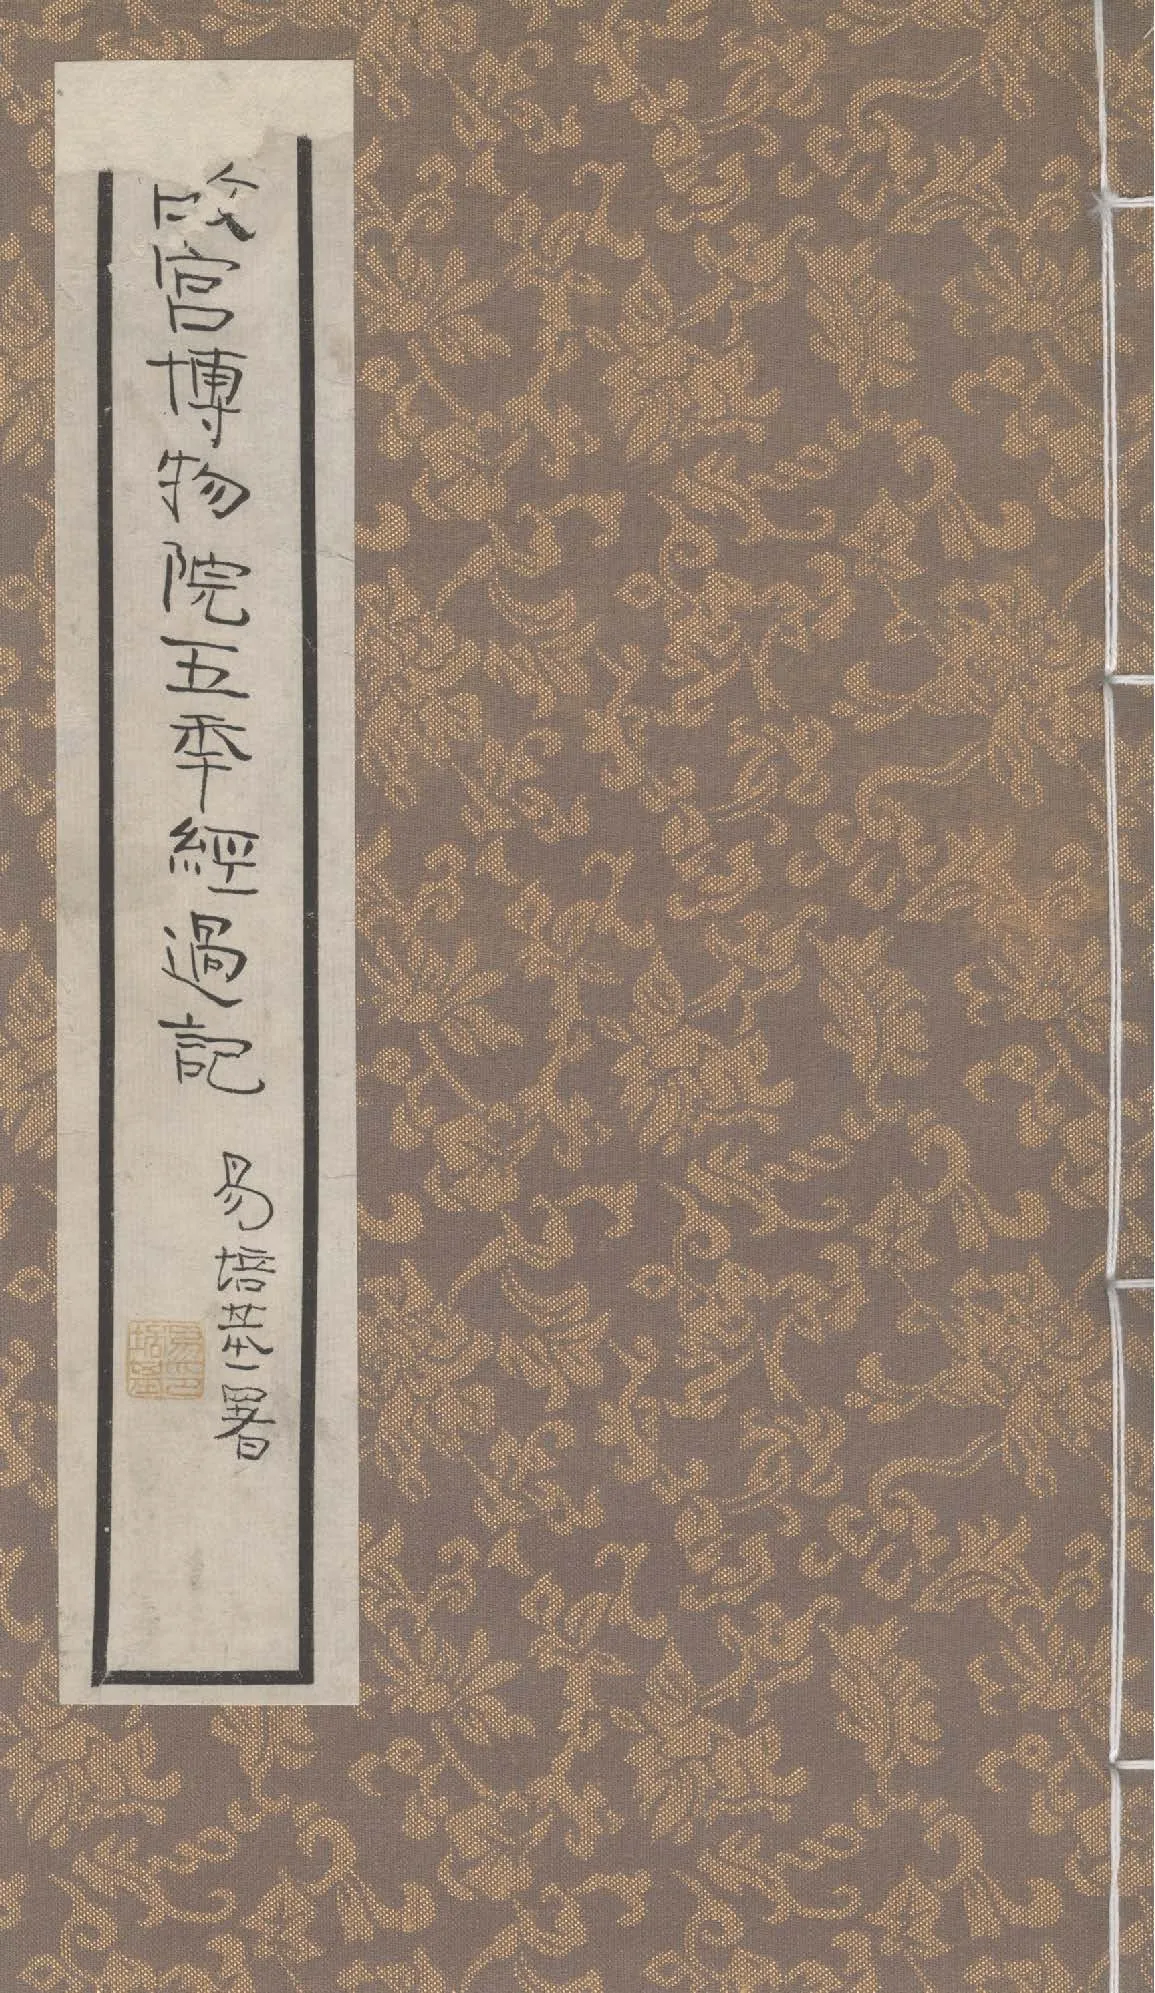 故宮博物院五年經過記
易培基署
易印培基